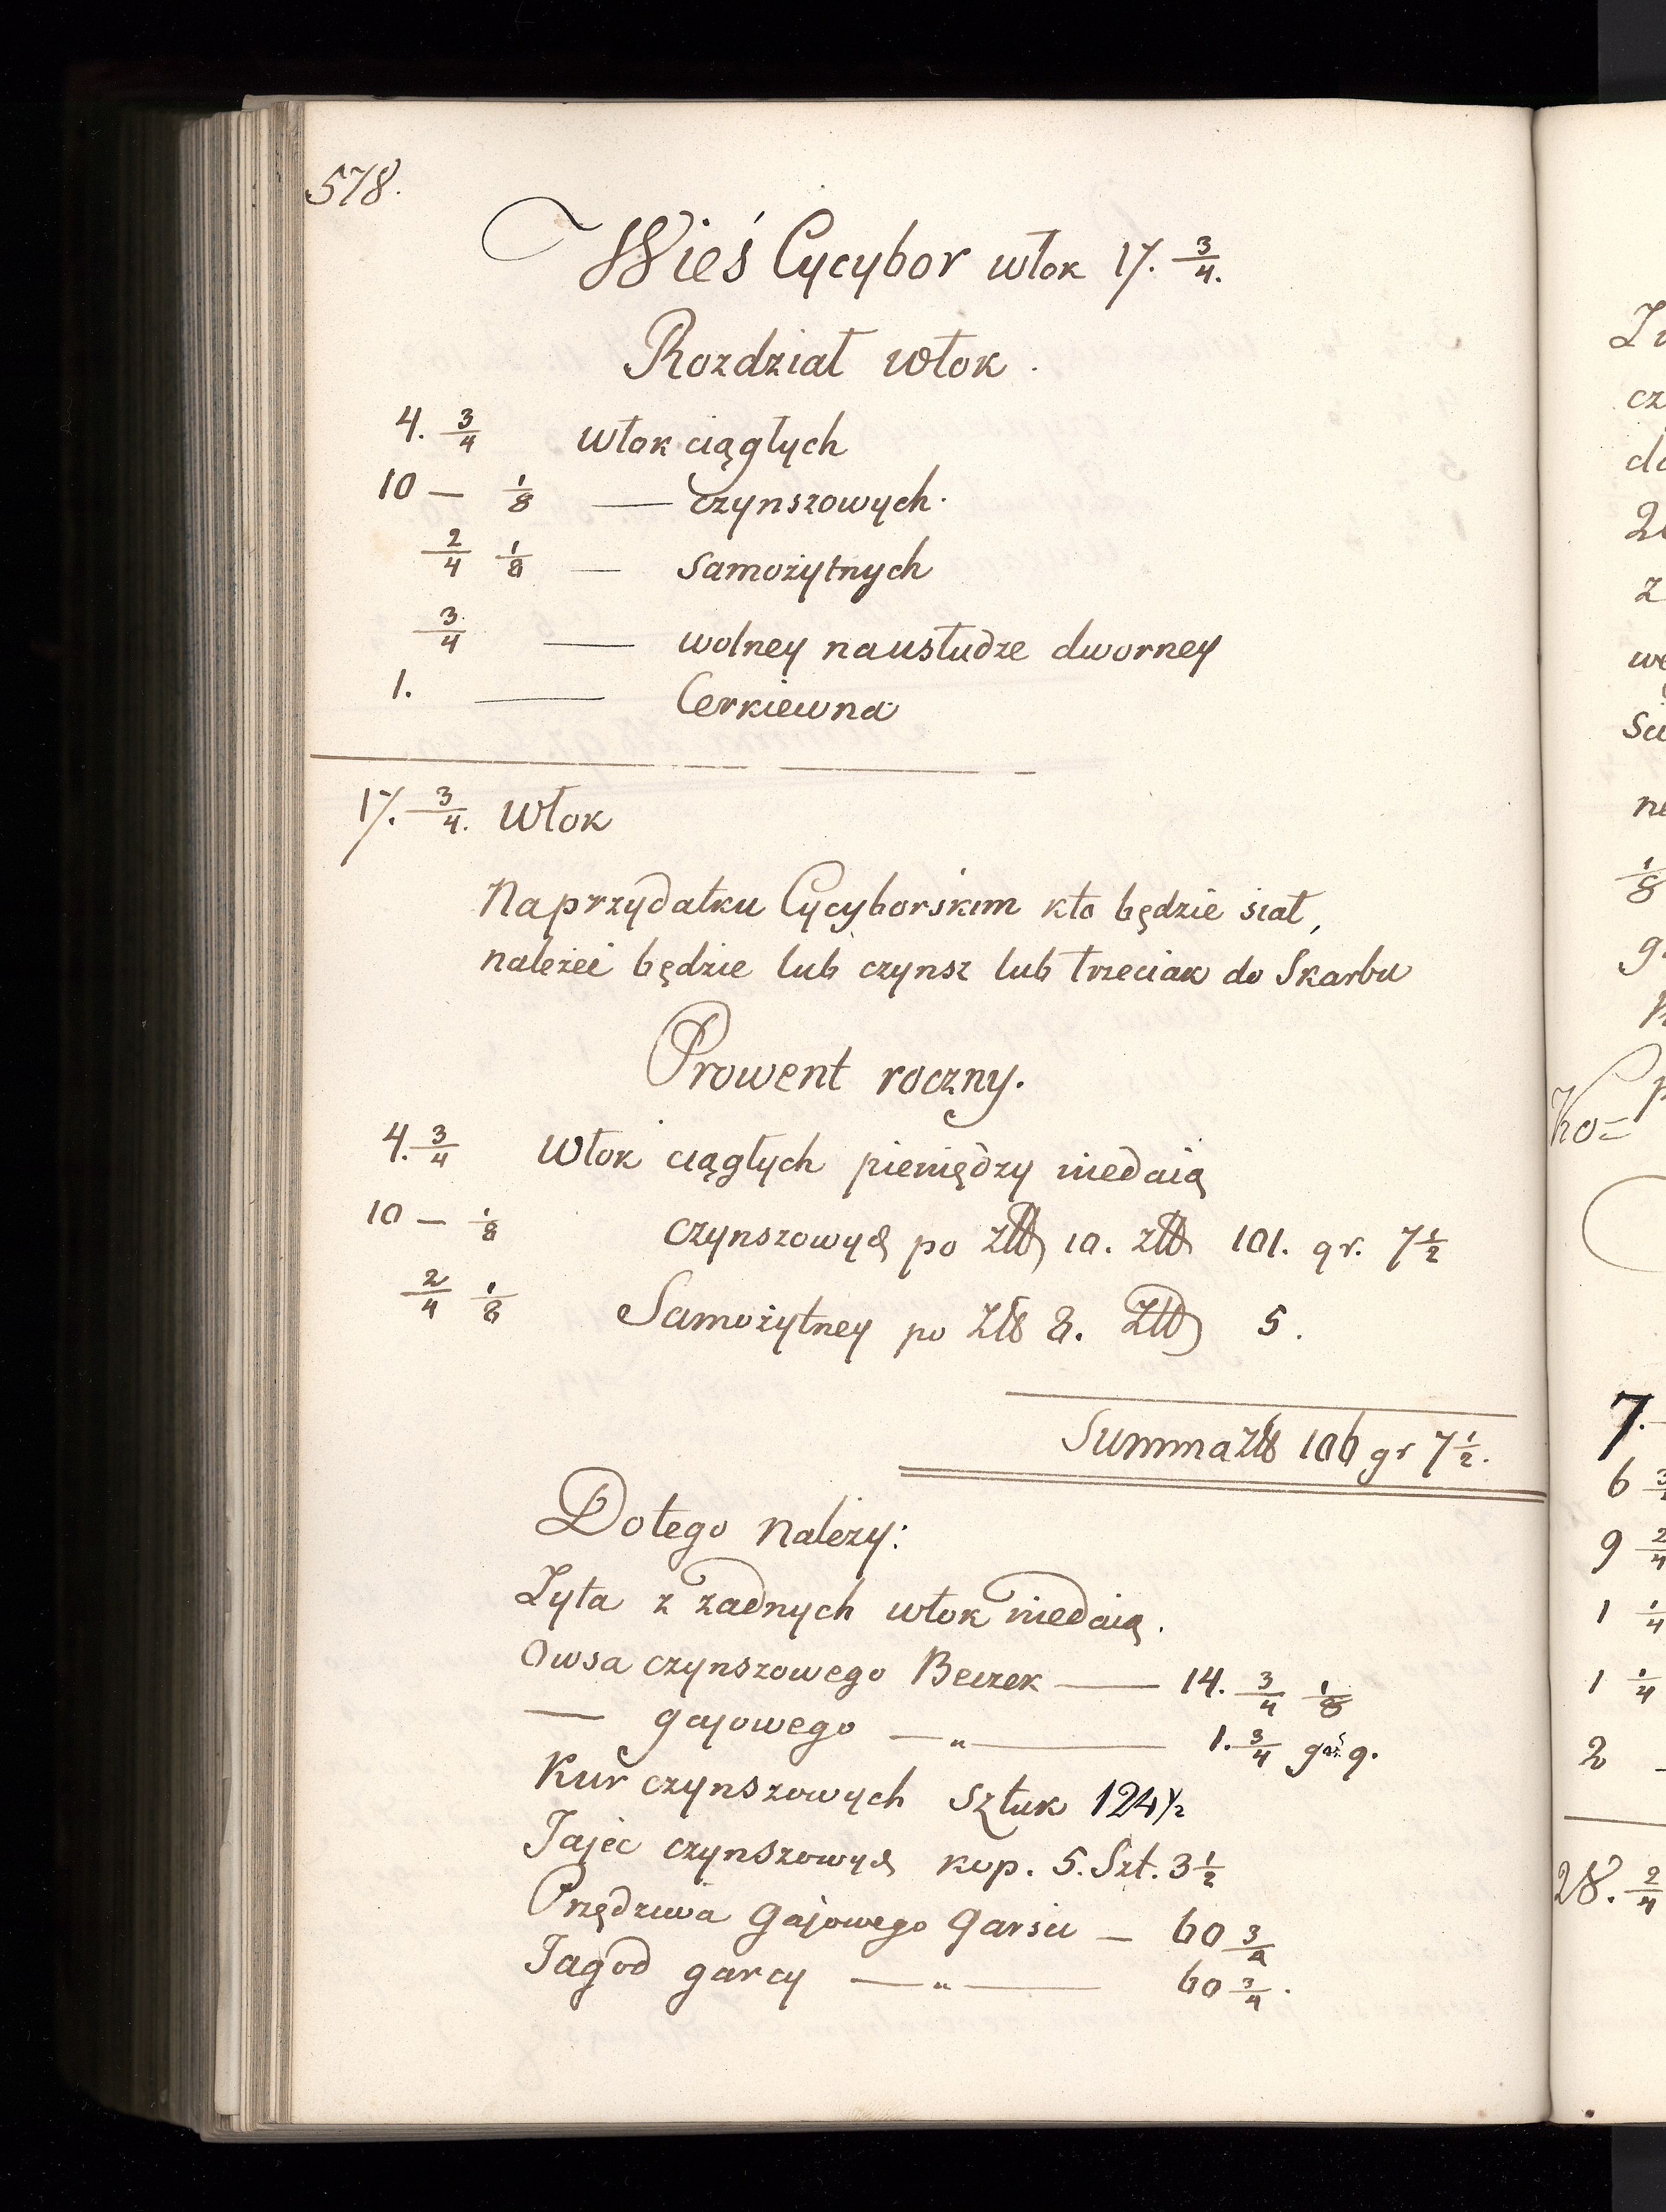 578.
Wieś Cycybor włok 17. 3/4.
Rozdział włok.
4. 3/4 włok ciągłych
10 — 1/8 — czynszowych.
2/4 1/8 — samożytnych
3/4 — wolney na usłudze dworney
1. — Cerkiewna
17. 3/4. Włok
Na przydatku Cycyborskim kto będzie siał,
należeć będzie lub czynsz lub trzeciak do Skarbu
Prowent roczny.
4. 3/4 Włok ciągłych pieniędzy niedaią
10 — 1/8 czynszowych po zł 10. zł 101. gr. 7 1/2
2/4 1/8 Samożytney po Zł 8. Zł 5.
Summa zł 106 gr 7 1/2.
Do tego należy:
Żyta z żadnych włok niedaią.
Owsa czynszowego Beczek — 14. 3/4 1/8
— gajowego — „ — 1. 3/4 gar. 9.
Kur czynszowych Sztuk 124 1/2
Jajec czynszowych kop. 5. Szt. 3 1/2
Przędziwa Gajowego Garści — 60 3/4
Jagod garcy — „ — 60 3/4.